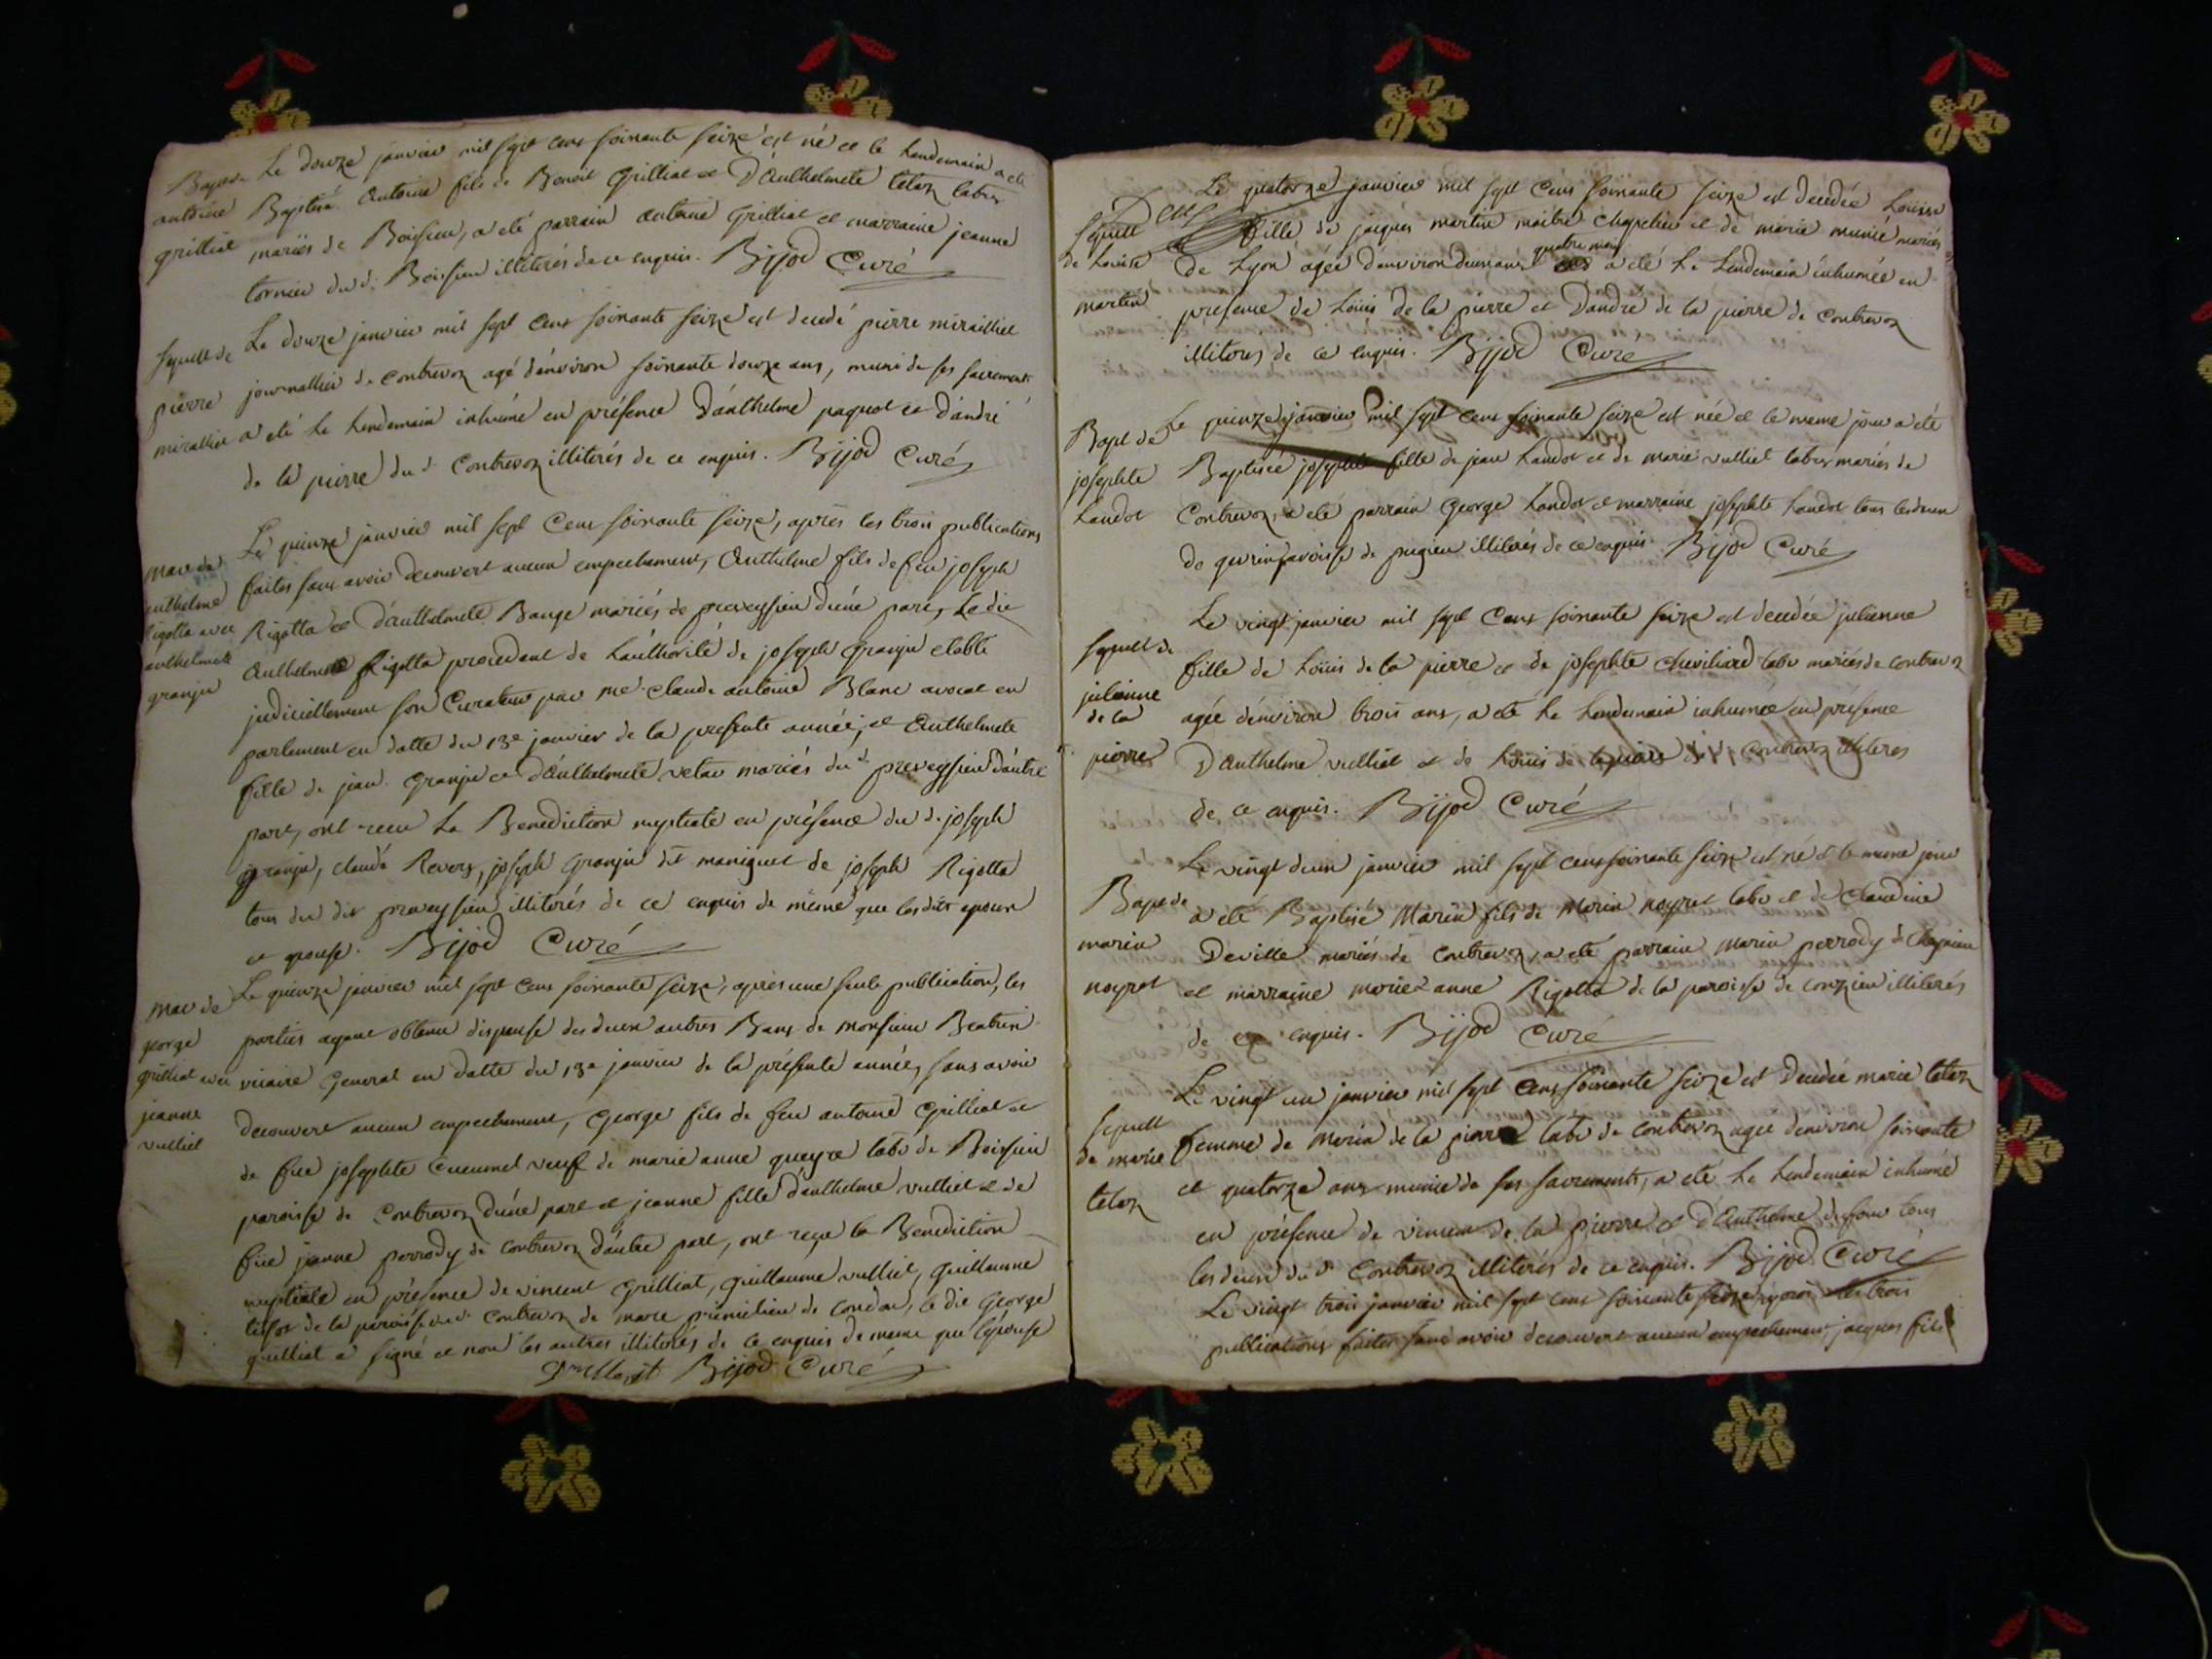 Bapt de
antoine
grilliat
Le douze janvier mil sept cens soixante seize est né et le lendemain a été
Baptisé Antoine fils de Benoit Grilliat et D'Anthelmete tetaz labrs
mariés de Boissieu, a eté parrain antoine Grilliat et marraine jeanne
tornier dud. Boissieu illiterés de ce enquis. Bijod Curé
sepult de
pierre
miraillier
Le douze janvier mil sept cens soixante seize est decedé pierre miraillier
journallier de Contrevoz agé d'environ soixante douze ans, muni de ses sacrements
a eté le lendemain inhumé en présence D'anthelme paquot et d'andré
de la pierre dud. Contrevoz illiterés de ce enquis. Bijod Curé
mar de
anthelme
Rigotta avec
anthelmete
granju
Le quinze janvier mil sept Cens soixante seize, après les trois publications
faites sans avoir decouvert aucun empechement, Anthelme fils de feu joseph
Rigotta et d'anthelmete Bange mariés de preveyssieu d'une part, Le dit
Anthelme Rigotta procedant de l'authorité de joseph granju etabli
judiciellement son Curateur par me claude antoine Blanc avocat en
parlement en datte du 13e janvier de la presente année, et Anthelmete
fille de jean granju et d'Anthelmete vetau mariés dud. preveyssieu d'autre
part, ont recu la Benediction nuptiale en présence du d. joseph
granju, claude Revers, joseph granju dit maniguet de joseph Rigotta
tous du dit preveyssieu illiterés de ce enquis de même que les dits epoux
et epouse. Bijod Curé
mar de
george
grilliat avec
jeanne
vulliet
Le quinze janvier mil sept cens soixante seize, après une seule publication, les
parties ayant obtenu dispense des deux autres Bans de monsieur Beatrix
vicaire General en datte du 13e janvier de la présente année, sans avoir
decouvert aucun empechement, George fils de feu antoine Grilliat et
de feue josephte Cucumel veuf de marie anne gueyre labr de Boissieu
paroisse de Contrevoz d'une part et jeanne fille d'anthelme vulliet et de
feue jeanne perrody de Contrevoz d'autre part, ont reçu la Benediction
nuptiale en présence de vincent Grilliat, guillaume vulliet, guillaume
tissot de la paroisse dud. Contrevoz de marc premilieu de Condon, le dit George
grilliat a signé et non les autres illiterés de ce enquis de meme que l'epouse
Bijod Curé
sepult
de Louise
martin
Le quatorze janvier mil sept Cens soixante seize est decedée Louise
fille de jaques martin maitre chapelier et de marie munié mariés
de Lyon agée d'environ deux ans quatre mois a eté le Lendemain inhumée en
presence de Louis de la pierre et D'andré de la pierre de Contrevoz
illiteres de ce enquis. Bijod Curé
Bapt de
josephte
Laudot
Le quinze janvier mil sept cens soixante seize est née et le meme jour a été
Baptisée josephte fille de jean Laudot et de marie vulliet labrs mariés de
Contrevoz, a eté parrain George Laudot et marraine josephte Laudot tous les deux
de gevrin paroisse de pugieu illiterés de ce enquis. Bijod Curé
sepult de
julienne
de la
pierre
Le vingt janvier mil sept Cens soixante seize est decedée julienne
fille de Louis de la pierre et de josephte chevillard labr mariés de contrevoz
agée d'environ trois ans, a eté le lendemain inhumée en présence
D'anthelme vulliet et de Louis de la pierre dud. Contrevoz illiteres
de ce enquis. Bijod Curé
Bapt de
marin
noyret
Le vingt deux janvier mil sept cens soixante seize est né et le meme jour
a eté Baptisé Marin fils de Marin noyret labr et de Claudine
Deville mariés de Contrevoz, a eté parrain Marin perrody de
et marraine marie anne Rigotta de la paroisse de Conzieu illiterés
de ce enquis. Bijod Curé
sepult
de marie
tetaz
Le vingt un janvier mil sept Cens soixante seize est Decedée marie tetaz
femme de Marin de la pierre labr de Contrevoz agée d'environ soixante
et quatorze ans munie de ses sacrements, a eté le lendemain inhumé
en présence de vincent de la pierre et d'Anthelme dufour tous
les deux dud. Contrevoz illiterés de ce enquis. Bijod Curé
Le vingt trois janvier mil sept cens soixante seize après les trois
publications faites sans avoir decouvert aucun empechement, jacques fils